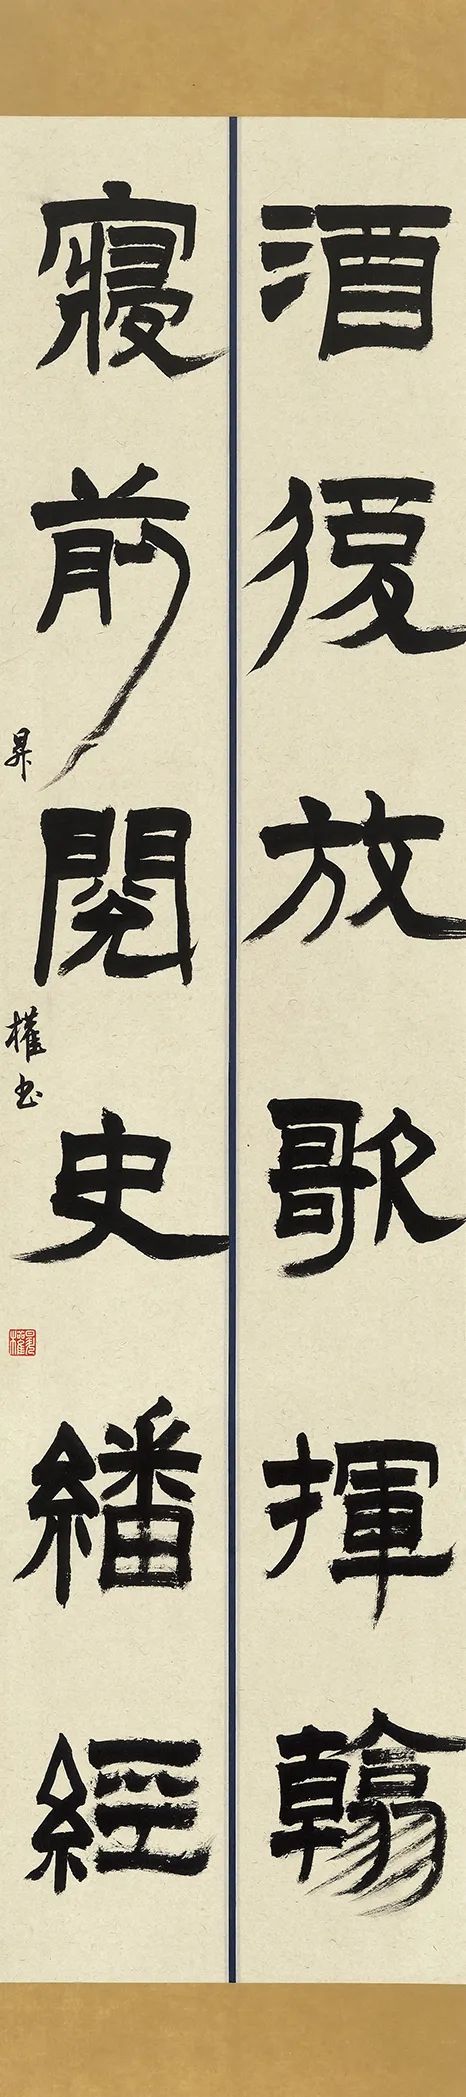 酒後放歌揮翰
寢前閱史繙經
昇權书